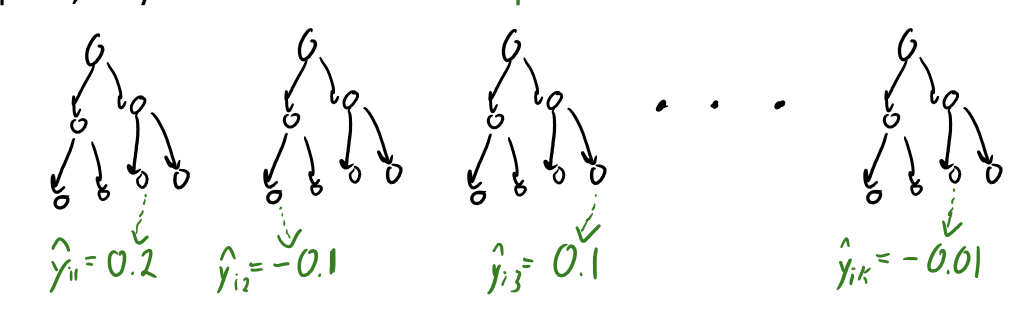 ŷi1 = 0.2 ŷi2 = -0.1 ŷi3 = 0.1 ŷik = -0.01